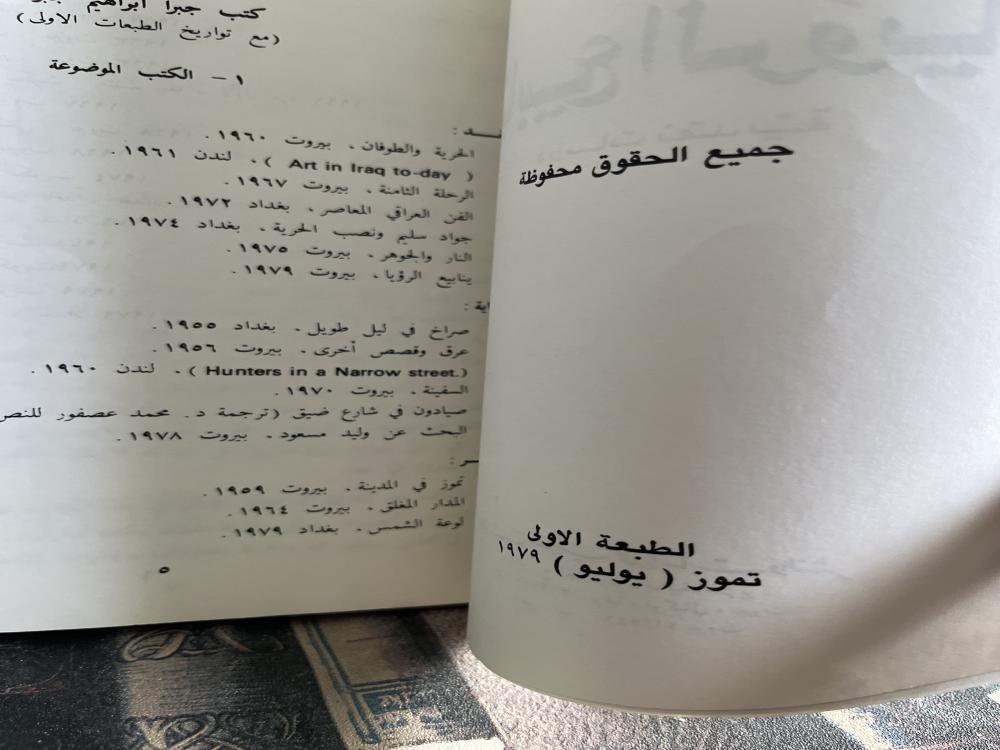 جميع الحقوق محفوظة
الطبعة الاولى
تموز ( يوليو ) ١٩٧٩
كتب جبرا ابراهيم
(مع تواريخ الطبعات الاولى)
١ - الكتب الموضوعة
الحرية والطوفان . بيروت ١٩٦٠ .
( Art in Iraq to-day ) . لندن ١٩٦١ .
الرحلة الثامنة . بيروت ١٩٦٧ .
الفن العراقي المعاصر . بغداد ١٩٧٢ .
جواد سليم ونصب الحرية . بغداد ١٩٧٤ .
النار والجوهر . بيروت ١٩٧٥ .
ينابيع الرؤيا . بيروت ١٩٧٩ .
صراخ في ليل طويل . بغداد ١٩٥٥ .
عرق وقصص أخرى . بيروت ١٩٥٦ .
(Hunters in a Narrow street.) . لندن ١٩٦٠ .
السفينة . بيروت ١٩٧٠ .
صيادون في شارع ضيق (ترجمة د. محمد عصفور للنص
البحث عن وليد مسعود . بيروت ١٩٧٨ .
تموز في المدينة . بيروت ١٩٥٩ .
المدار المغلق . بيروت ١٩٦٤ .
لوعة الشمس . بغداد ١٩٧٩ .
٥